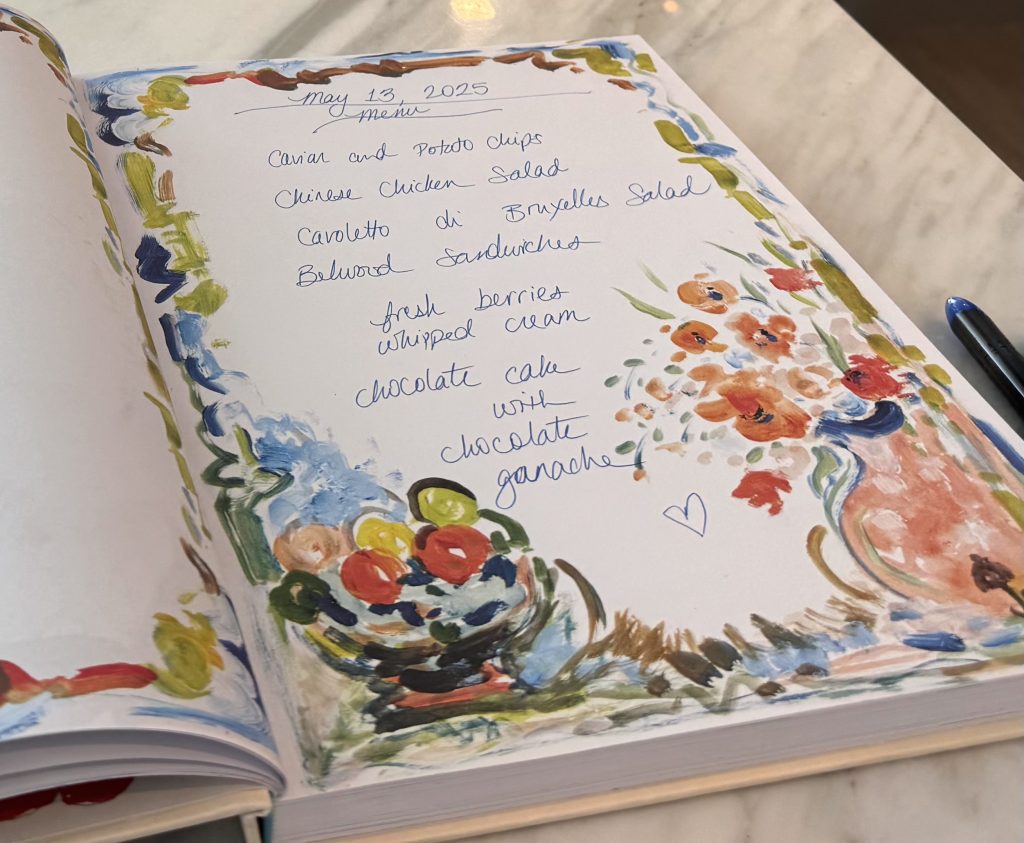 May 13, 2025
menu
Caviar and Potato chips
Chinese Chicken Salad
Cavoletto di Bruxelles Salad
Belwood Sandwiches
fresh berries
whipped cream
chocolate cake
with
chocolate
ganache